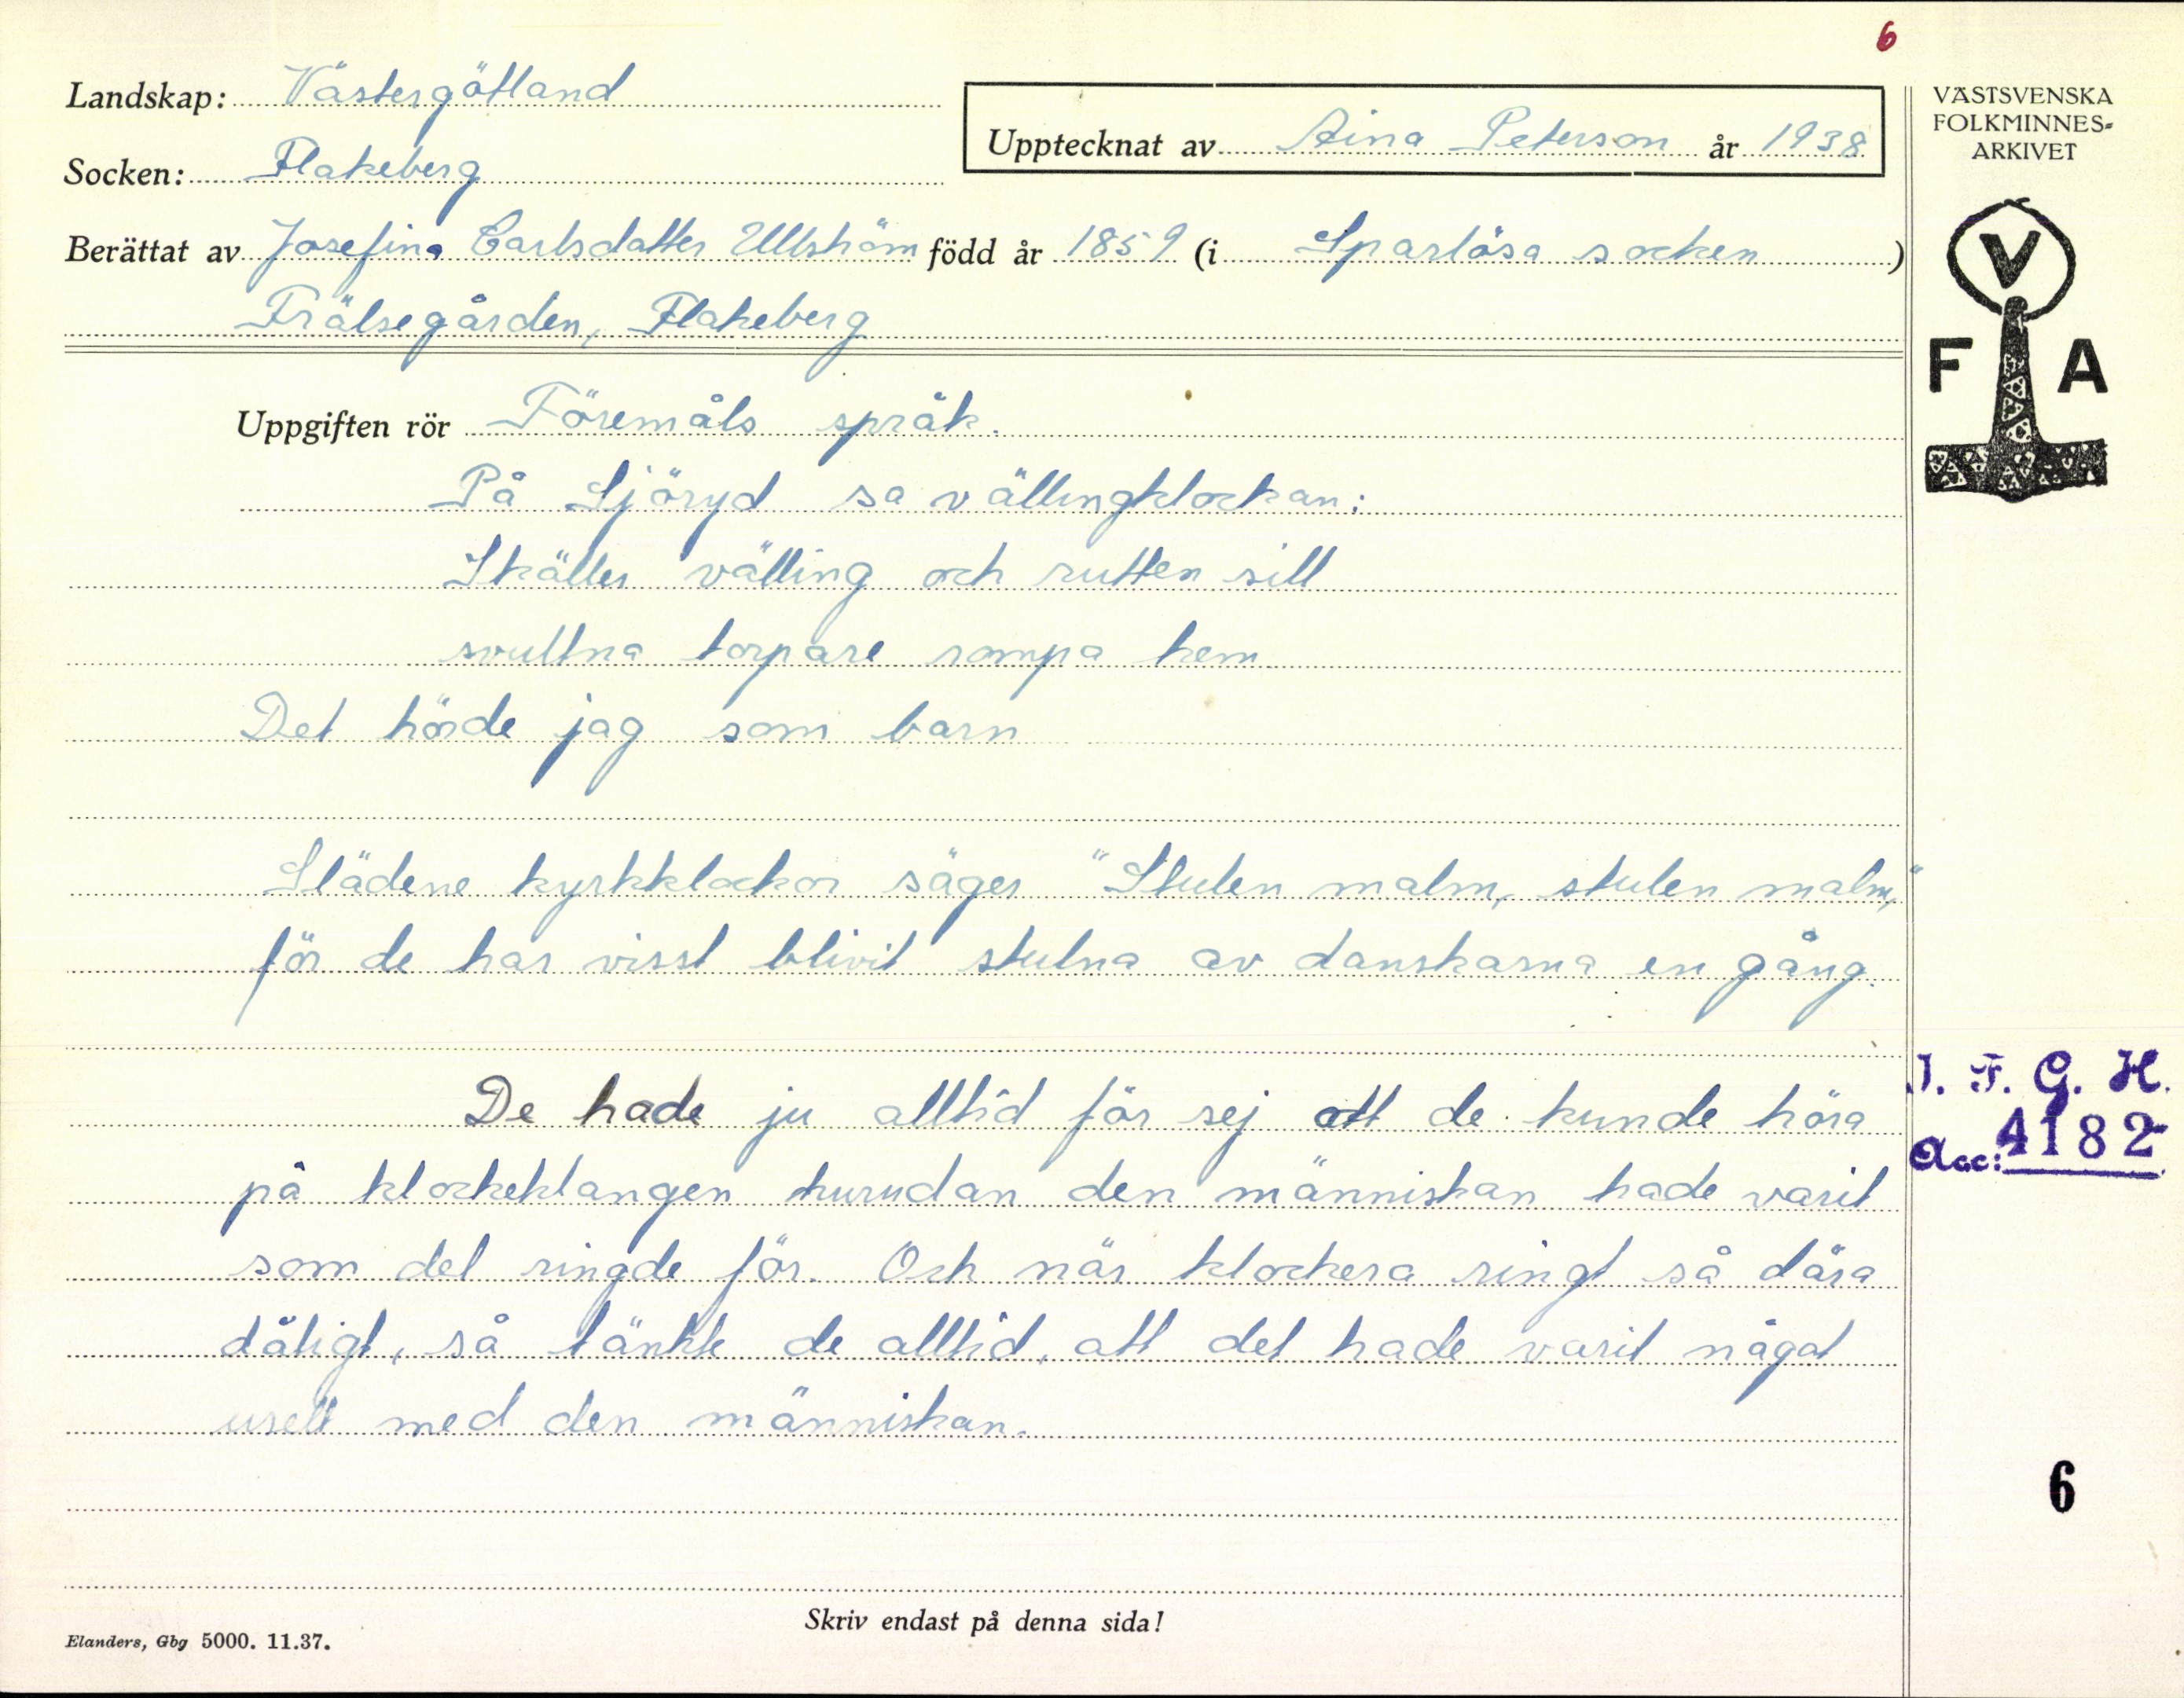 6
Landskap: Västergötland
Upptecknat av Aina Peterson år 1938
VÄSTSVENSKA
FOLKMINNES-
ARKIVET
Socken: Flakeberg
Berättat av Josefina Carlsdatter Ullström född år 1859 (i Sparlösa socken)
Frälsegården, Flakeberg
V
F A
Uppgiften rör Föremåls språk.
På Sjöryd sa vällingklockan:
Skäller välling och rutten sill
svultna torpare rompa hem
Det hörde jag som barn
Slädene kyrkklockor säger "Stulen malm, stulen malm,"
för de har visst blivit stulna av danskarna en gång.
De hade ju alltid för sej att de kunde höra
på klockeklangen hurudan den människan hade varit
som det ringde för. Och när klockera ringt så dära
dåligt, så tänkte de alltid, att det hade varit något
uselt med den människan.
I. F. G. H.
Acc: 4182
6
Skriv endast på denna sida!
Elanders, Gbg 5000. 11.37.